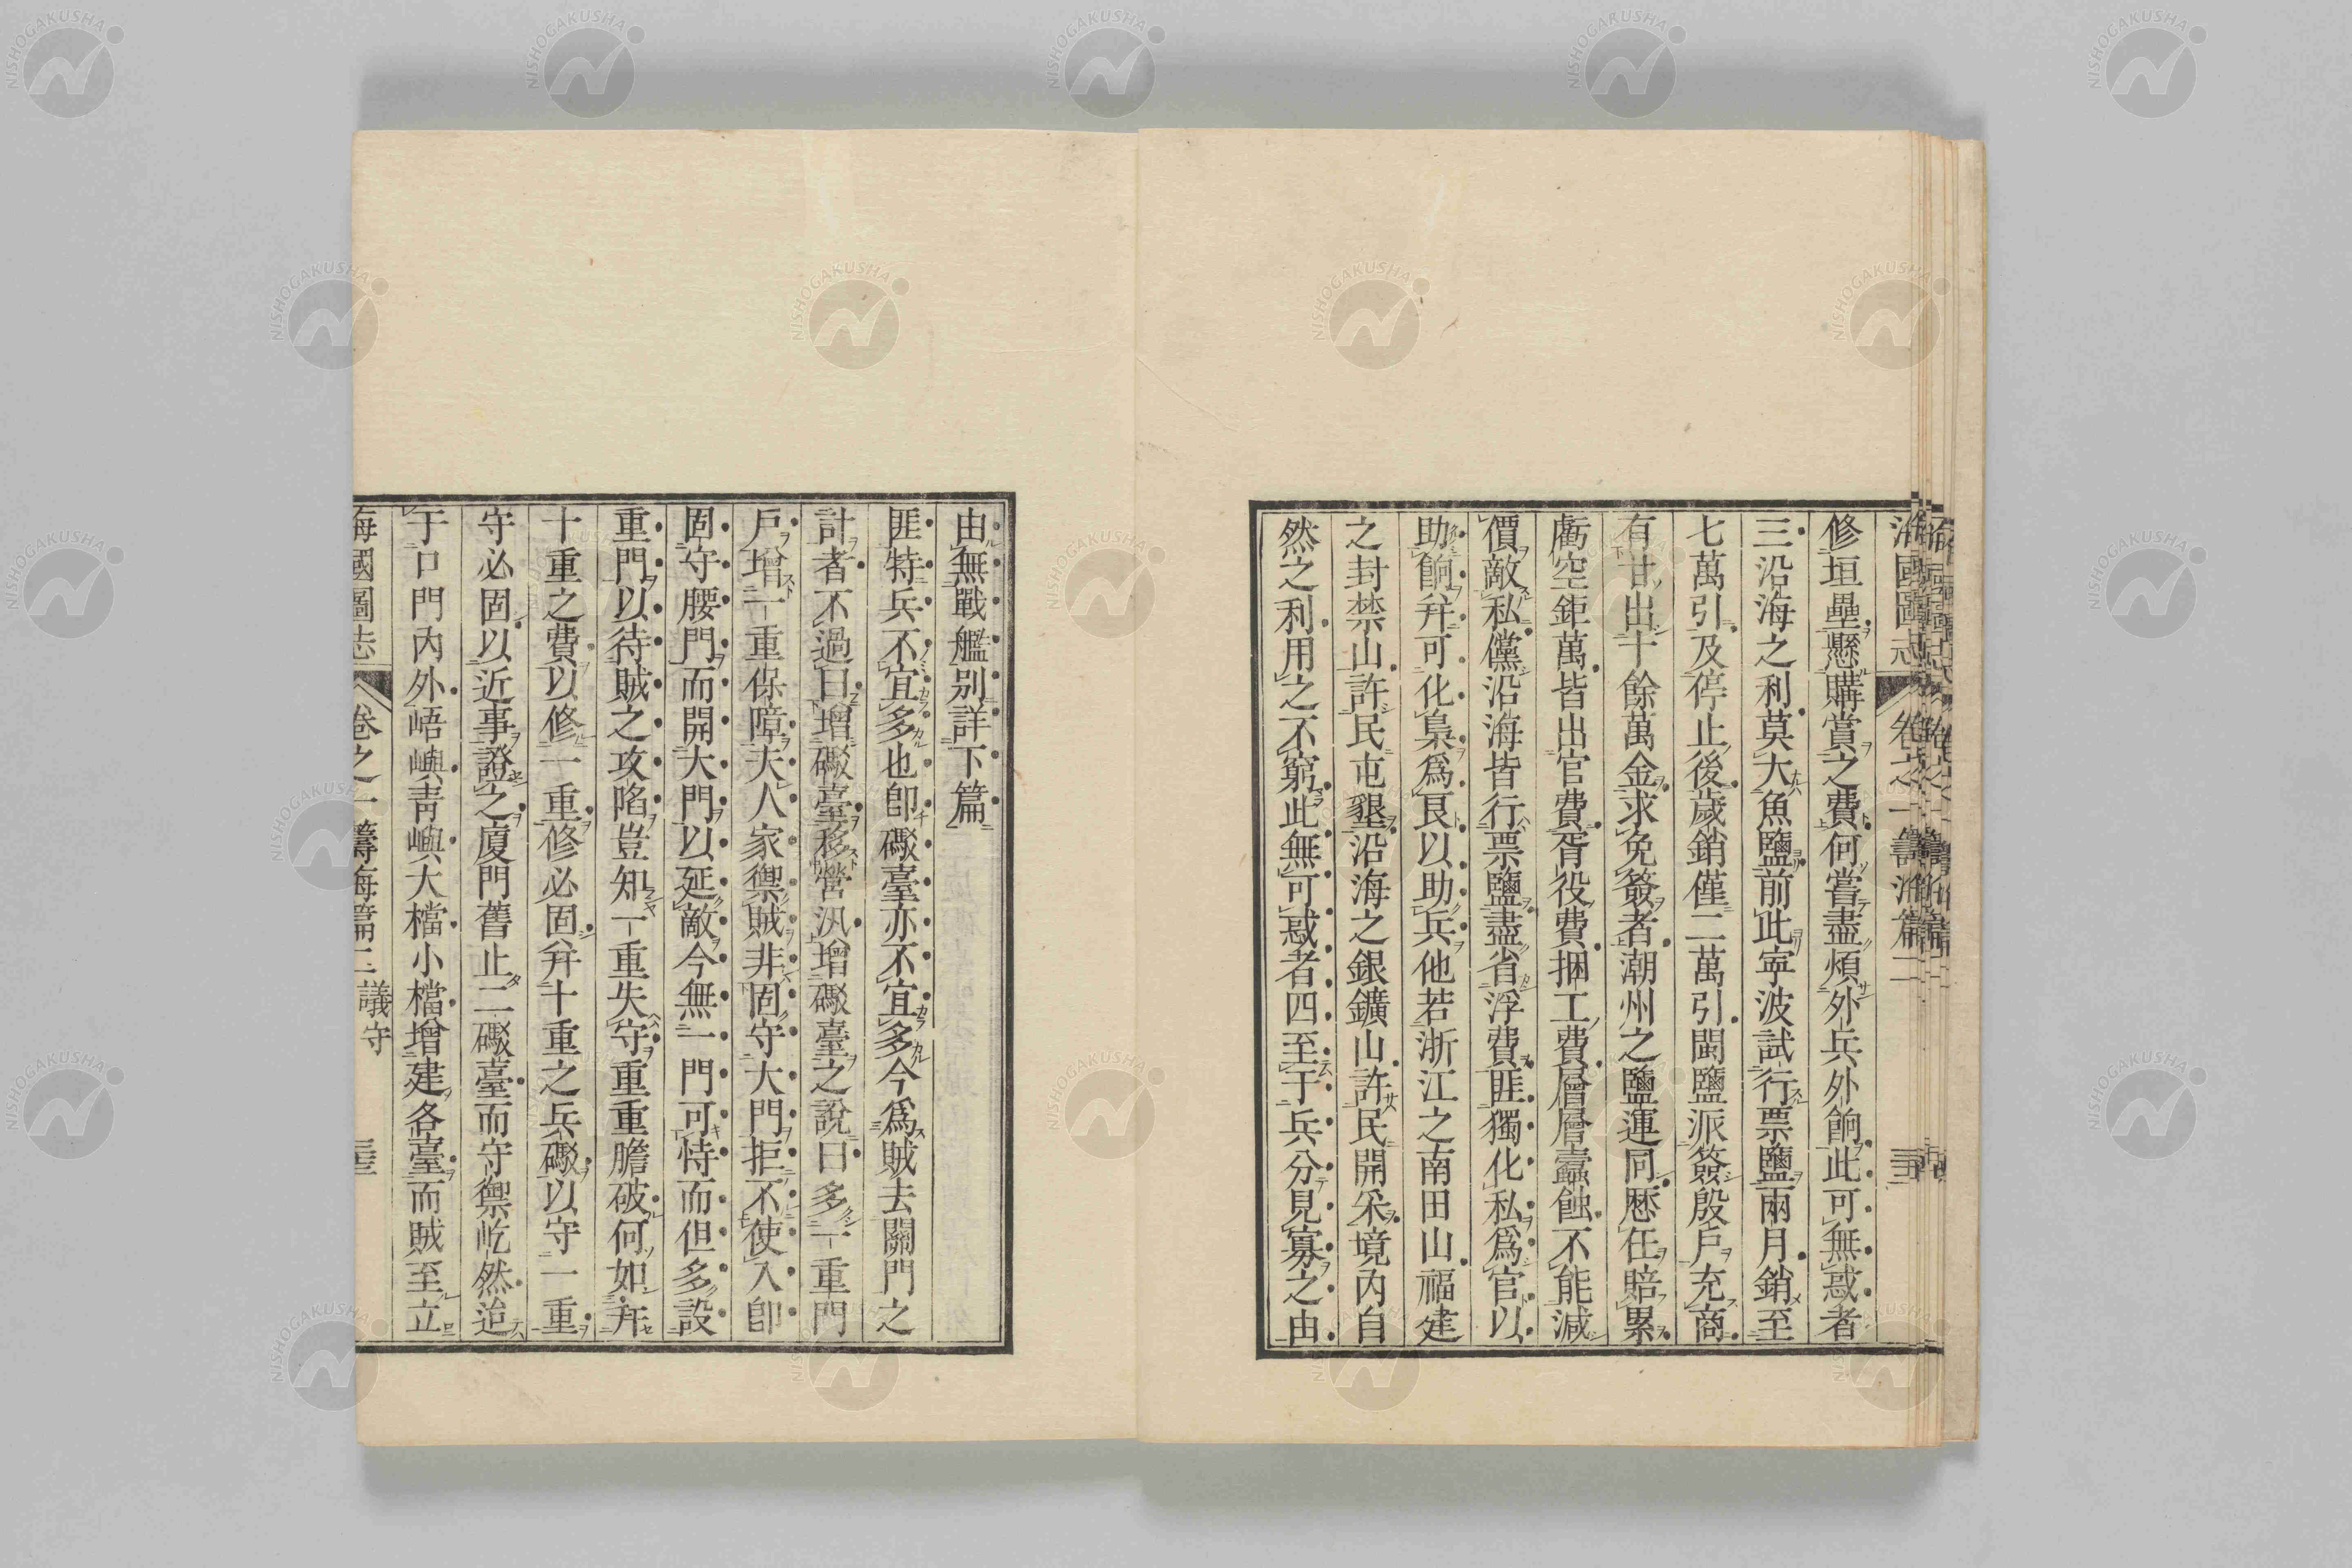 海國圖志 卷之一 籌海篇二
修垣壘懸購賞之費何嘗盡煩外兵外餉此可無惑者
三沿海之利莫大魚鹽前此寧波試行票鹽兩月銷至
七萬引及停止後歲銷僅二萬引閩鹽派簽殷戶充商
有甘出十餘萬金求免簽者潮州之鹽運同歷任賠累
虧空鉅萬皆出官費胥役費捆工費層層蠹蝕不能減
價敵私儻沿海皆行票鹽盡省浮費匪獨化私爲官以
助餉幷可化梟爲良以助兵他若浙江之南田山福建
之封禁山許民屯墾沿海之銀鑛山許民開采境內自
然之利用之不窮此無可惑者四至于兵分見寡之由
由無戰艦別詳下篇
匪特兵不宜多也卽礮臺亦不宜多今爲賊去關門之
計者不過曰增礮臺移營汛增礮臺之說曰多一重門
戶增一重保障夫人家禦賊非固守大門拒不使入卽
固守腰門而開大門以延敵今無一門可恃而但多設
重門以待賊之攻陷豈知一重失守重重膽破何如幷
十重之費以修一重修必固幷十重之兵礮以守一重
守必固以近事證之廈門舊止二礮臺而守禦屹然迨
于口門內外峿嶼靑嶼大檔小檔增建各臺而賊至立
海國圖志 卷之一 籌海篇三 議守
NISHOGAKUSHA